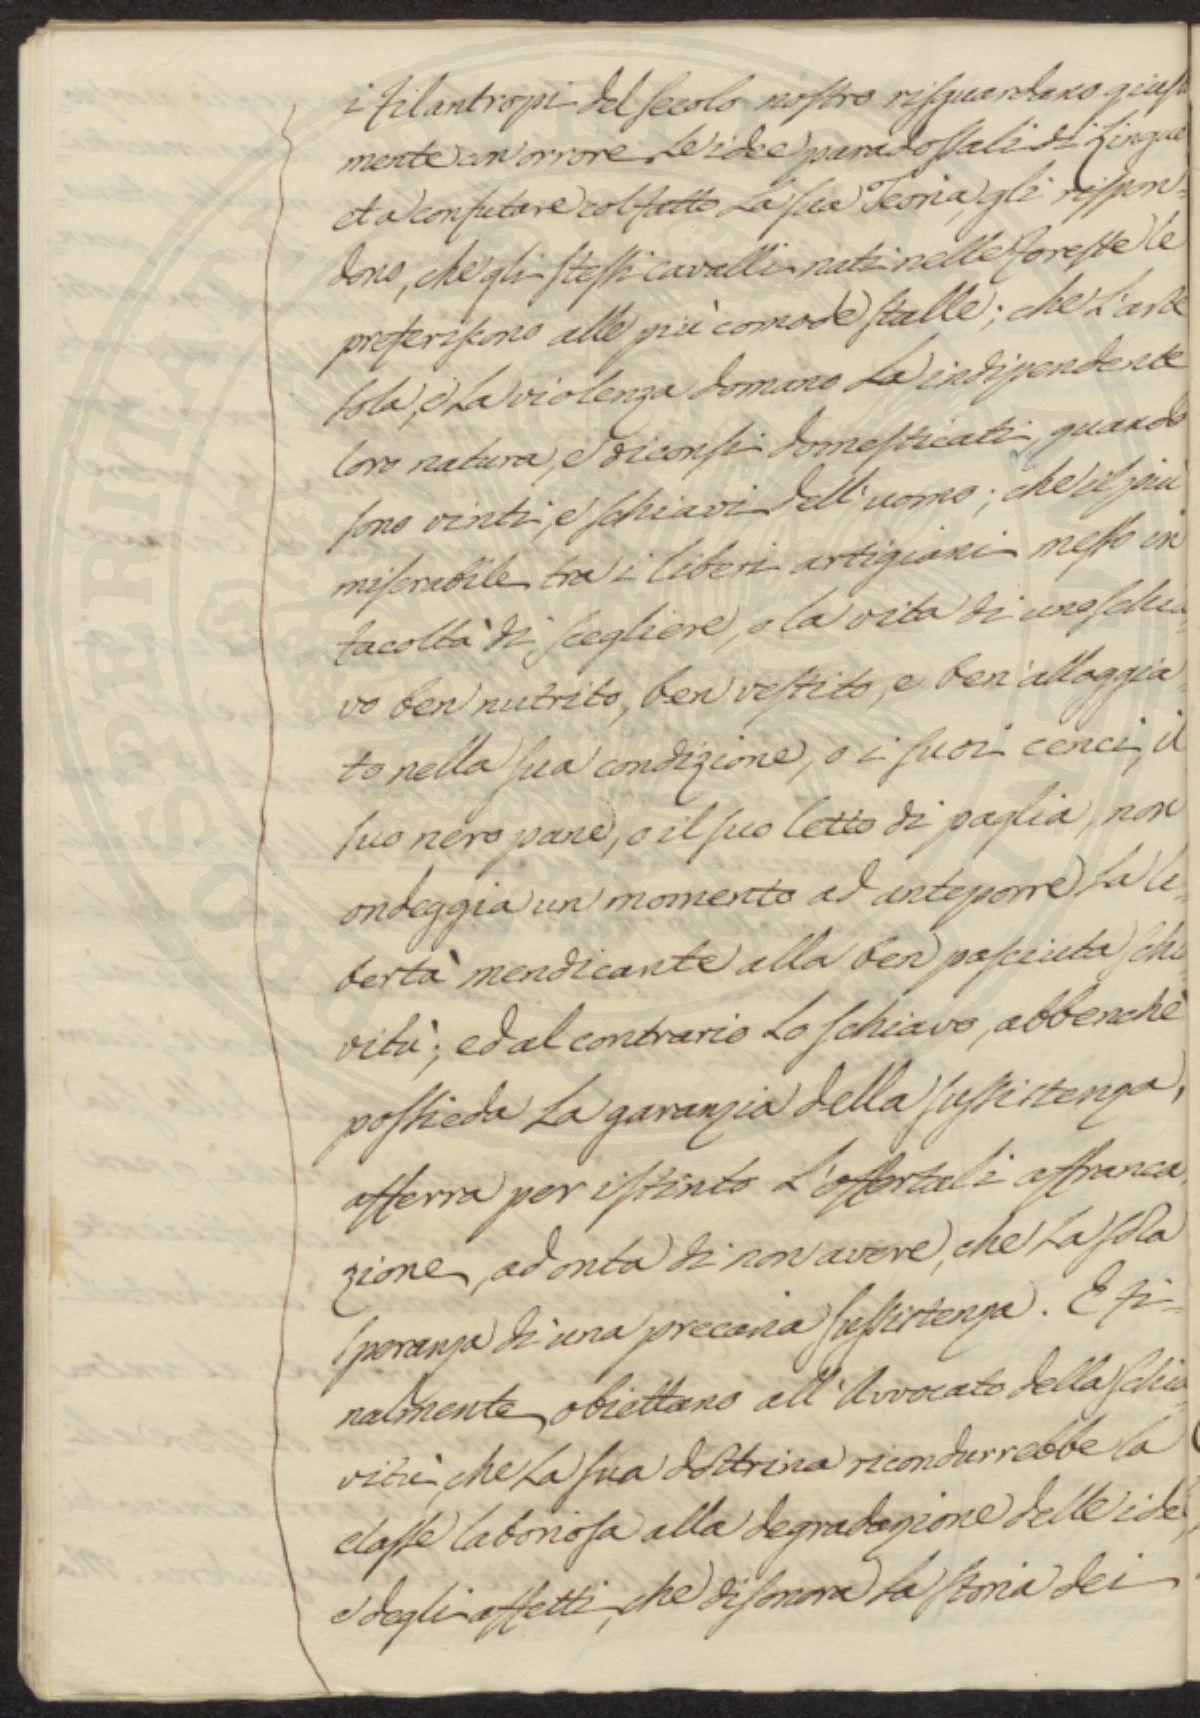 i Filantropi del secolo nostro risguardano giusta
mente con orrore le idee paradossali di Lingue
et a confutare col fatto la sua Teoria, gli rispon-
dono, che gli stessi cavalli nati nelle Foreste le
preferiscono alle più comode stalle; che l'arte
sola, e la violenza domano la indipendente
loro natura, e diconsi domesticati, quando
sono vinti, e schiavi dell'uomo; che il più
miserabile tra i liberi artigiani messo in
facoltà di scegliere, o la vita di uno schia-
vo ben nutrito, ben vestito, e ben alloggia-
to nella sua condizione, o i suoi cenci, il
suo nero pane, o il suo letto di paglia, non
ondeggia un momento ad anteporre la li-
bertà mendicante alla ben pasciuta schia-
vitù; ed al contrario lo schiavo, abbenchè
possieda la garanzia della sussistenza,
afferra per istinto l'offertali affranca-
zione, ad onta di non avere, che la sola
speranza di una precaria sussistenza. E fi-
nalmente obiettano all'Avvocato della schia-
vitù, che la sua dottrina ricondurrebbe la
classe laboriosa alla degradazione delle idee,
e degli affetti, che disonora la storia dei
PROSPERITATI